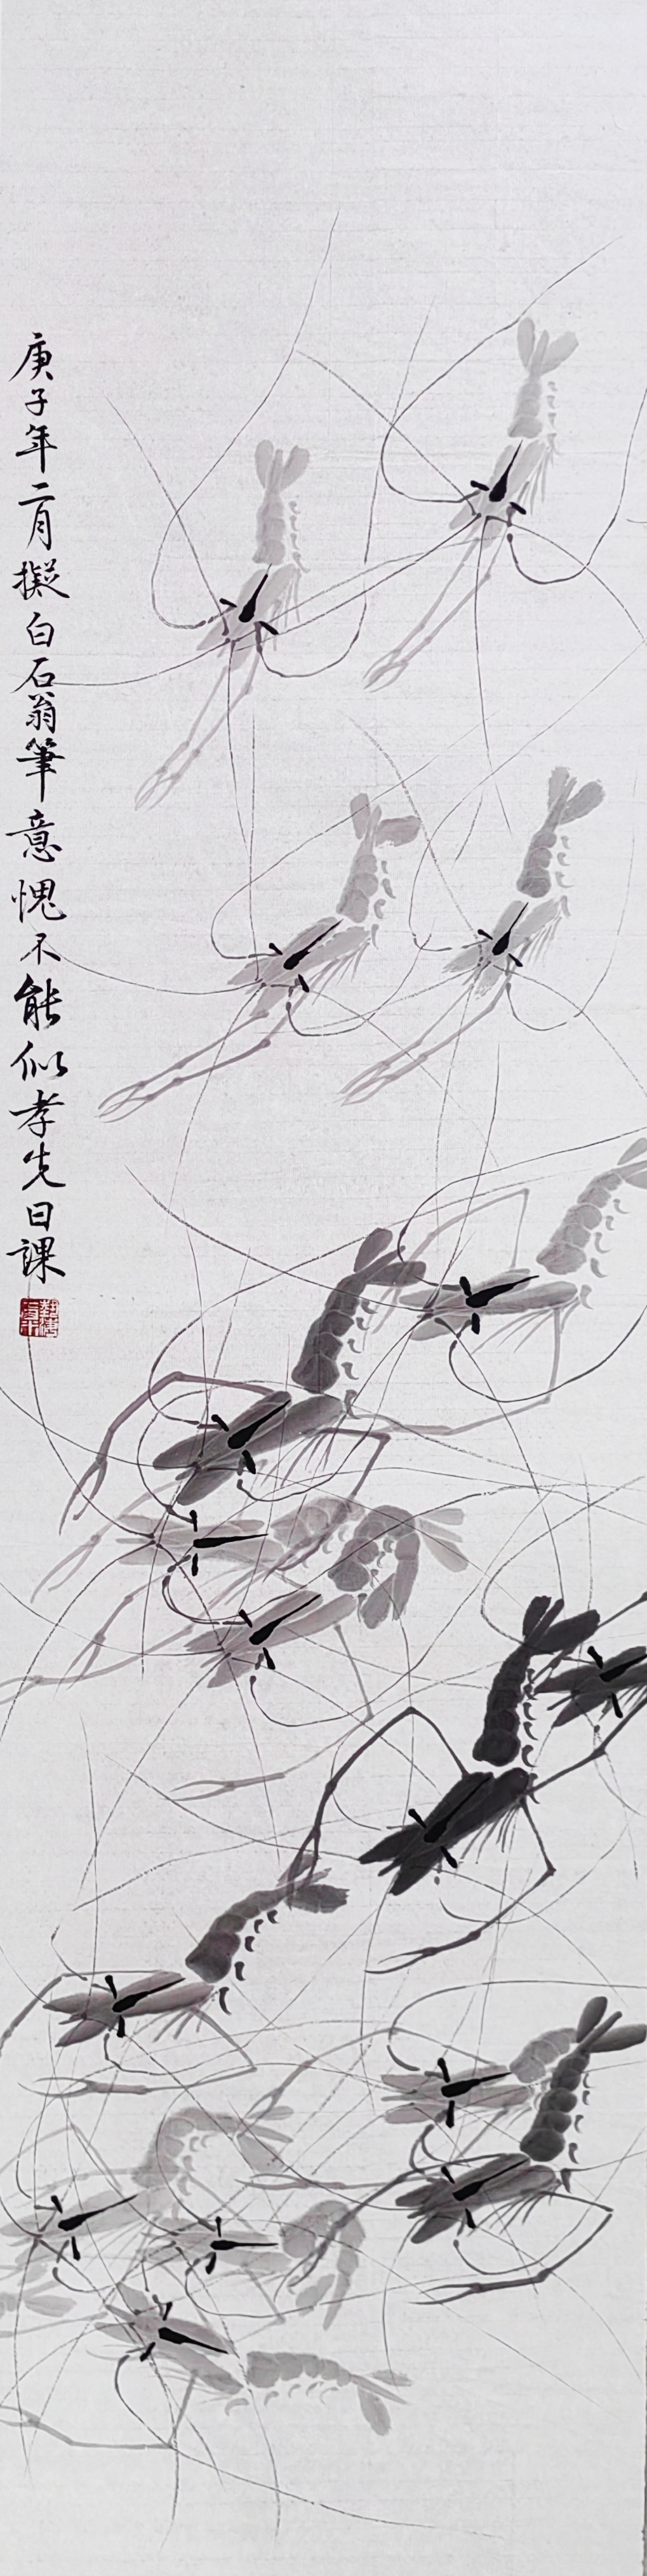 庚子年二月擬白石翁筆意愧不能似孝先日課